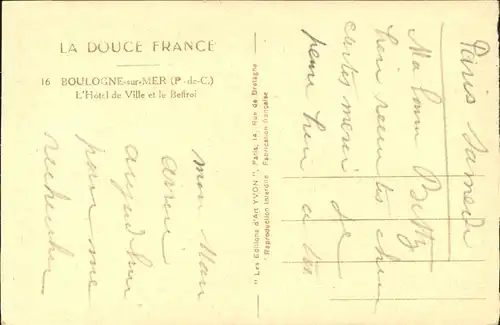 LA DOUCE FRANCE
16 BOULOGNE-sur-MER (P.-de-C.)
L'Hôtel de Ville et le Beffroi
" Les Editions d'Art YVON ", Paris, 14, Rue de Bretagne
Reproduction interdite Fabrication française
Paris Samedi
Ma Betty
bien reçu tes
cartes merci je
pense bien a toi
mon Mari
arrive
aujourd'hui
pour me
rechercher